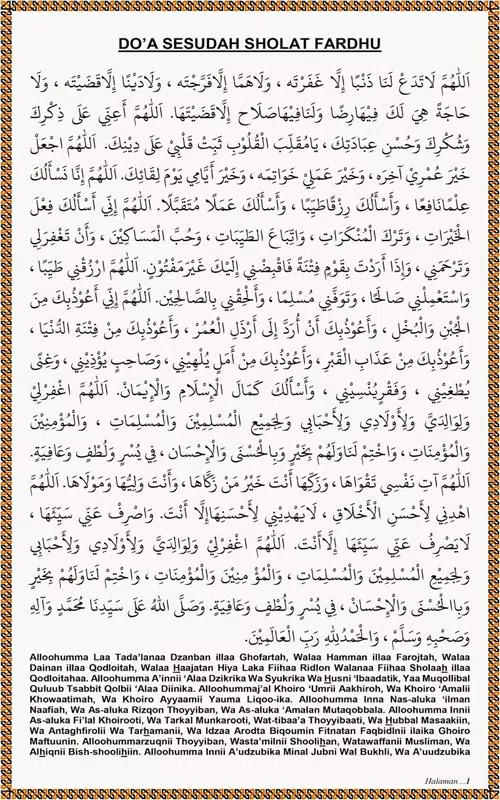 DO'A SESUDAH SHOLAT FARDHU
اَللّٰهُمَّ لَاتَدَعْ لَنَا ذَنْبًا إِلَّا غَفَرْتَه ، وَلَاهَمًّا إِلَّافَرَّجْتَه ، وَلَادَيْنًا إِلَّاقَضَيْتَه ، وَلَا
حَاجَةً هِيَ لَكَ فِيْهَارِضًا وَلَنَافِيْهَاصَلَاح إِلَّاقَضَيْتَهَا. اَللّٰهُمَّ أَعِنِّي عَلَى ذِكْرِكَ
وَشُكْرِكَ وَحُسْنِ عِبَادَتِكَ ، يَامُقَلِّبَ الْقُلُوْبِ ثَبِّتْ قَلْبِيْ عَلَى دِيْنِكَ. اَللّٰهُمَّ اجْعَلْ
خَيْرَ عُمْرِيْ آخِرَه ، وَخَيْرَ عَمَلِيْ خَوَاتِمَه ، وَخَيْرَ أَيَّامِي يَوْمَ لِقَائِكَ. اَللّٰهُمَّ إِنَّا نَسْأَلُكَ
عِلْمًانَافِعًا ، وَأَسْأَلُكَ رِزْقًاطَيِّبًا ، وَأَسْأَلُكَ عَمَلًا مُتَقَبَّلًا. اَللّٰهُمَّ إِنِّي أَسْأَلُكَ فِعْلَ
الْخَيْرَاتِ ، وَتَرْكَ الْمُنْكَرَاتِ ، وَاتِّبَاعَ الطَّيِّبَاتِ ، وَحُبَّ الْمَسَاكِيْنَ ، وَأَنْ تَغْفِرَلِي
وَتَرْحَمَنِي ، وَإِذَا أَرَدْتَ بِقَوْمٍ فِتْنَةً فَاقْبِضْنِي إِلَيْكَ غَيْرَمَفْتُوْنٍ. اَللّٰهُمَّ ارْزُقْنِي طَيِّبًا ،
وَاسْتَعْمِلْنِي صَالِحًا ، وَتَوَفَّنِي مُسْلِمًا ، وَأَلْحِقْنِي بِالصَّالِحِيْنَ. اَللّٰهُمَّ إِنِّي أَعُوْذُبِكَ مِنَ
الْجُبْنِ وَالْبُخْلِ ، وَأَعُوْذُبِكَ أَنْ أُرَدَّ إِلَى أَرْذَلِ الْعُمُرْ ، وَأَعُوْذُبِكَ مِنْ فِتْنَةِ الدُّنْيَا ،
وَأَعُوْذُبِكَ مِنْ عَذَابِ الْقَبْرِ ، وَأَعُوْذُبِكَ مِنْ أَمَلٍ يُلْهِيْنِي ، وَصَاحِبٍ يُؤْذِيْنِي ، وَغِنًى
يُطْغِيْنِي ، وَفَقْرٍيُنْسِيْنِي ، وَأَسْأَلُكَ كَمَالَ الْإِسْلَامِ وَالْإِيْمَانْ. اَللّٰهُمَّ اغْفِرْلِيْ
وَلِوَالِدَيَّ وَلِأَوْلَادِي وَلِأَحْبَابِي وَلِجَمِيْعِ الْمُسْلِمِيْنَ وَالْمُسْلِمَاتِ ، وَالْمُؤْمِنِيْنَ
وَالْمُؤْمِنَاتِ ، وَاخْتِمْ لَنَاوَلَهُمْ بِخَيْرٍ وَبِالْحُسْنَى وَالْإِحْسَان ، فِي يُسْرٍ وَلُطْفٍ وَعَافِيَةٍ.
اَللّٰهُمَّ آتِ نَفْسِي تَقْوَاهَا ، وَزَكِّهَا أَنْتَ خَيْرُ مَنْ زَكَّاهَا ، وَأَنْتَ وَلِيُّهَا وَمَوْلَاهَا. اَللّٰهُمَّ
اهْدِنِي لِأَحْسَنِ الْأَخْلَاقِ ، لَايَهْدِيْنِي لِأَحْسَنِهَاإِلَّا أَنْتَ. وَاصْرِفْ عَنِّي سَيِّئَهَا ،
لَايَصْرِفُ عَنِّي سَيِّئَهَا إِلَّاأَنْتَ. اَللّٰهُمَّ اغْفِرْلِيْ وَلِوَالِدَيَّ وَلِأَوْلَادِي وَلِأَحْبَابِي
وَلِجَمِيْعِ الْمُسْلِمِيْنَ وَالْمُسْلِمَاتِ ، وَالْمُؤْ مِنِيْنَ وَالْمُؤْمِنَاتِ ، وَاخْتِمْ لَنَاوَلَهُمْ بِخَيْرٍ
وَبِاالْحُسْنَى وَالْإِحْسَانْ ، فِي يُسْرٍ وَلُطْفٍ وَعَافِيَةٍ. وَصَلَّى اللهُ عَلَى سَيِّدِنَا مُحَمَّدٍ وَآلِهِ
وَصَحْبِهِ وَسَلَّمْ ، وَالْحَمْدُلِلّٰهِ رَبِّ الْعَالَمِيْنَ.
Alloohumma Laa Tada'lanaa Dzanban illaa Ghofartah, Walaa Hamman illaa Farojtah, Walaa
Dainan illaa Qodloitah, Walaa Haajatan Hiya Laka Fiihaa Ridlon Walanaa Fiihaa Sholaah illaa
Qodloitahaa. Alloohumma A'innii 'Alaa Dzikrika Wa Syukrika Wa Husni 'Ibaadatik, Yaa Muqollibal
Quluub Tsabbit Qolbii 'Alaa Diinika. Alloohummaj'al Khoiro 'Umrii Aakhiroh, Wa Khoiro 'Amalii
Khowaatimah, Wa Khoiro Ayyaamii Yauma Liqoo-ika. Alloohumma Inna Nas-aluka 'ilman
Naafiah, Wa As-aluka Rizqon Thoyyiban, Wa As-aluka 'Amalan Mutaqobbala. Alloohumma Innii
As-aluka Fi'lal Khoirooti, Wa Tarkal Munkarooti, Wat-tibaa'a Thoyyibaati, Wa Hubbal Masaakiin,
Wa Antaghfirolii Wa Tarhamanii, Wa Idzaa Arodta Biqoumin Fitnatan Faqbidlnii ilaika Ghoiro
Maftuunin. Alloohummarzuqnii Thoyyiban, Wasta'milnii Shoolihan, Watawaffanii Musliman, Wa
Alhiqnii Bish-shoolihiin. Alloohumma Innii A'udzubika Minal Jubni Wal Bukhli, Wa A'uudzubika
Halaman…1